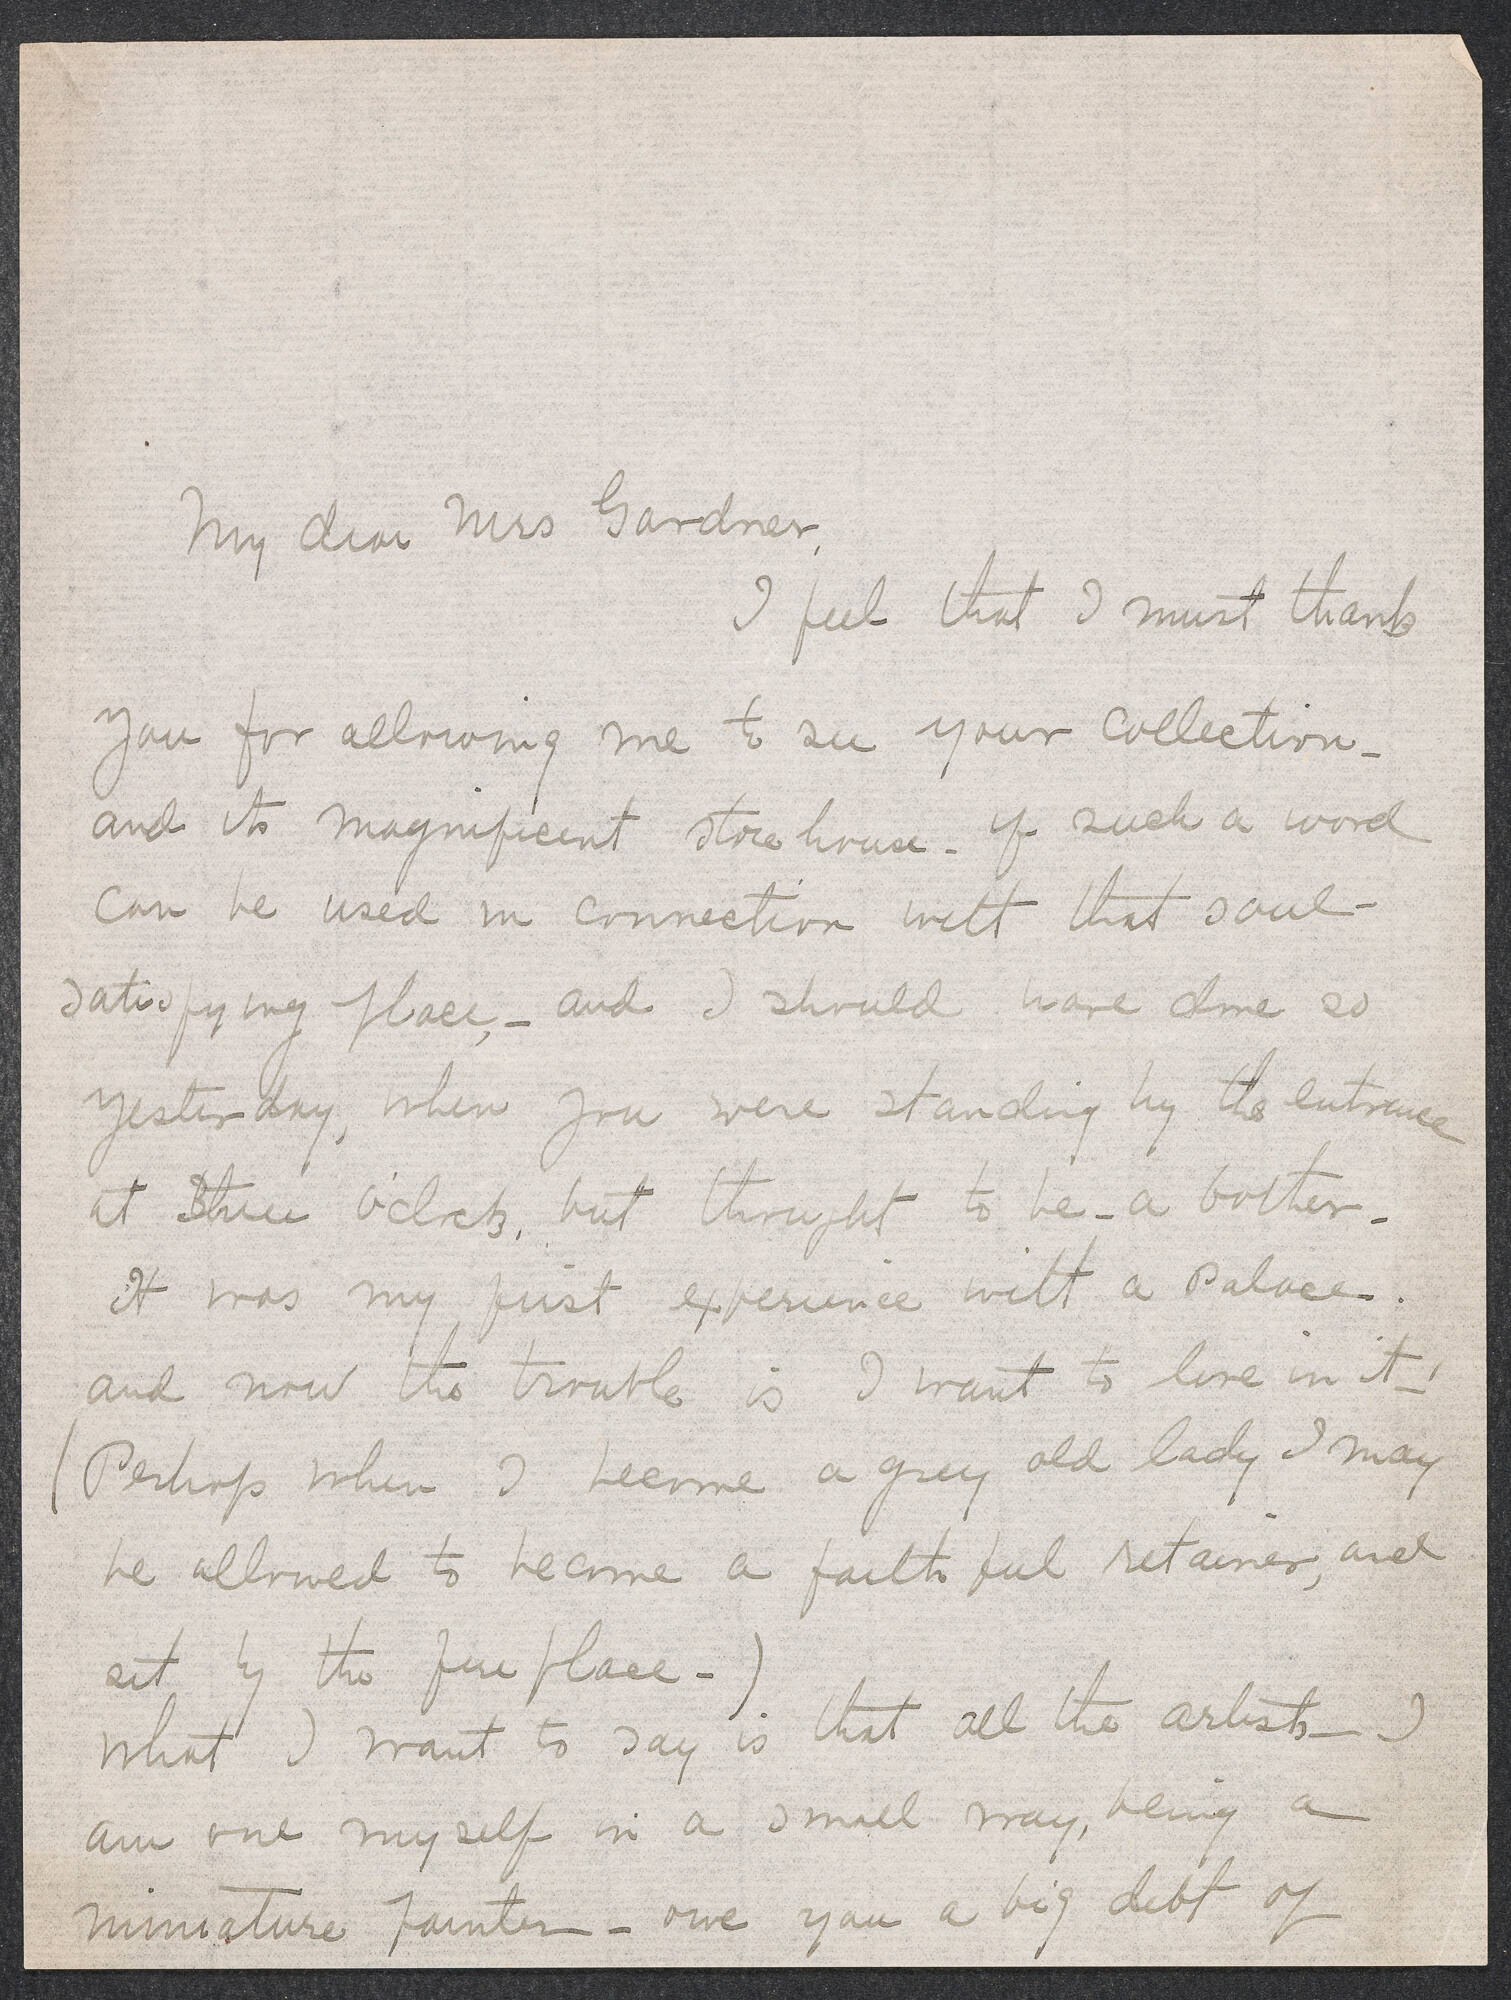 My dear Mrs Gardner,
I feel that I must thank
you for allowing me to see your collection -
and its magnificent store house - if such a word
can be used in connection with that soul -
satisfying place, - and I should have done so
yesterday, when you were standing by the entrance
at three o'clock, but thought to be - a bother -
It was my first experience with a Palace.
and now the trouble is I want to live in it - !
(Perhaps when I become a grey old lady I may
be allowed to become a faithful retainer, and
sit by the fire place - )
what I want to say is that all the artists - I
am one myself in a small way, being a
miniature painter - owe you a big debt of